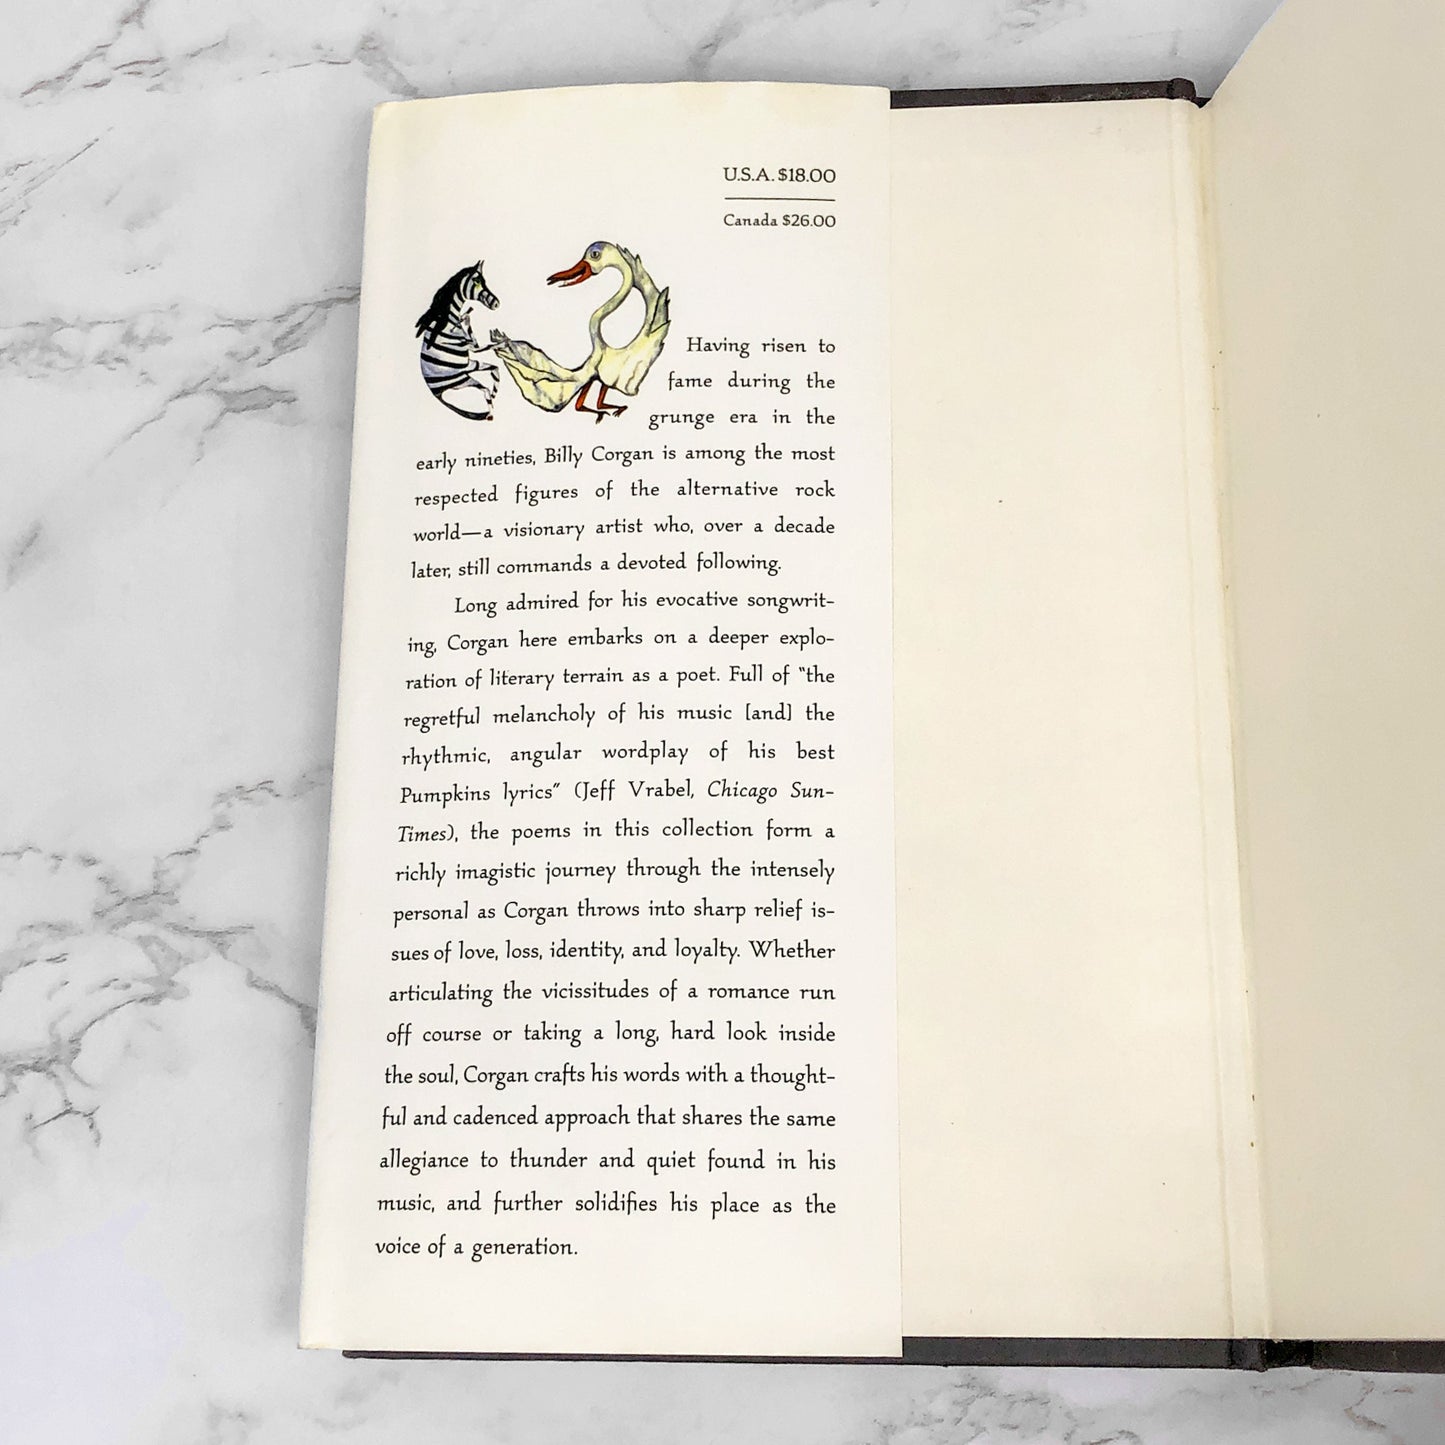 U.S.A. $18.00
Canada $26.00
Having risen to
fame during the
grunge era in the
early nineties, Billy Corgan is among the most
respected figures of the alternative rock
world—a visionary artist who, over a decade
later, still commands a devoted following.
Long admired for his evocative songwrit-
ing, Corgan here embarks on a deeper explo-
ration of literary terrain as a poet. Full of "the
regretful melancholy of his music [and] the
rhythmic, angular wordplay of his best
Pumpkins lyrics" (Jeff Vrabel, Chicago Sun-
Times), the poems in this collection form a
richly imagistic journey through the intensely
personal as Corgan throws into sharp relief is-
sues of love, loss, identity, and loyalty. Whether
articulating the vicissitudes of a romance run
off course or taking a long, hard look inside
the soul, Corgan crafts his words with a thought-
ful and cadenced approach that shares the same
allegiance to thunder and quiet found in his
music, and further solidifies his place as the
voice of a generation.